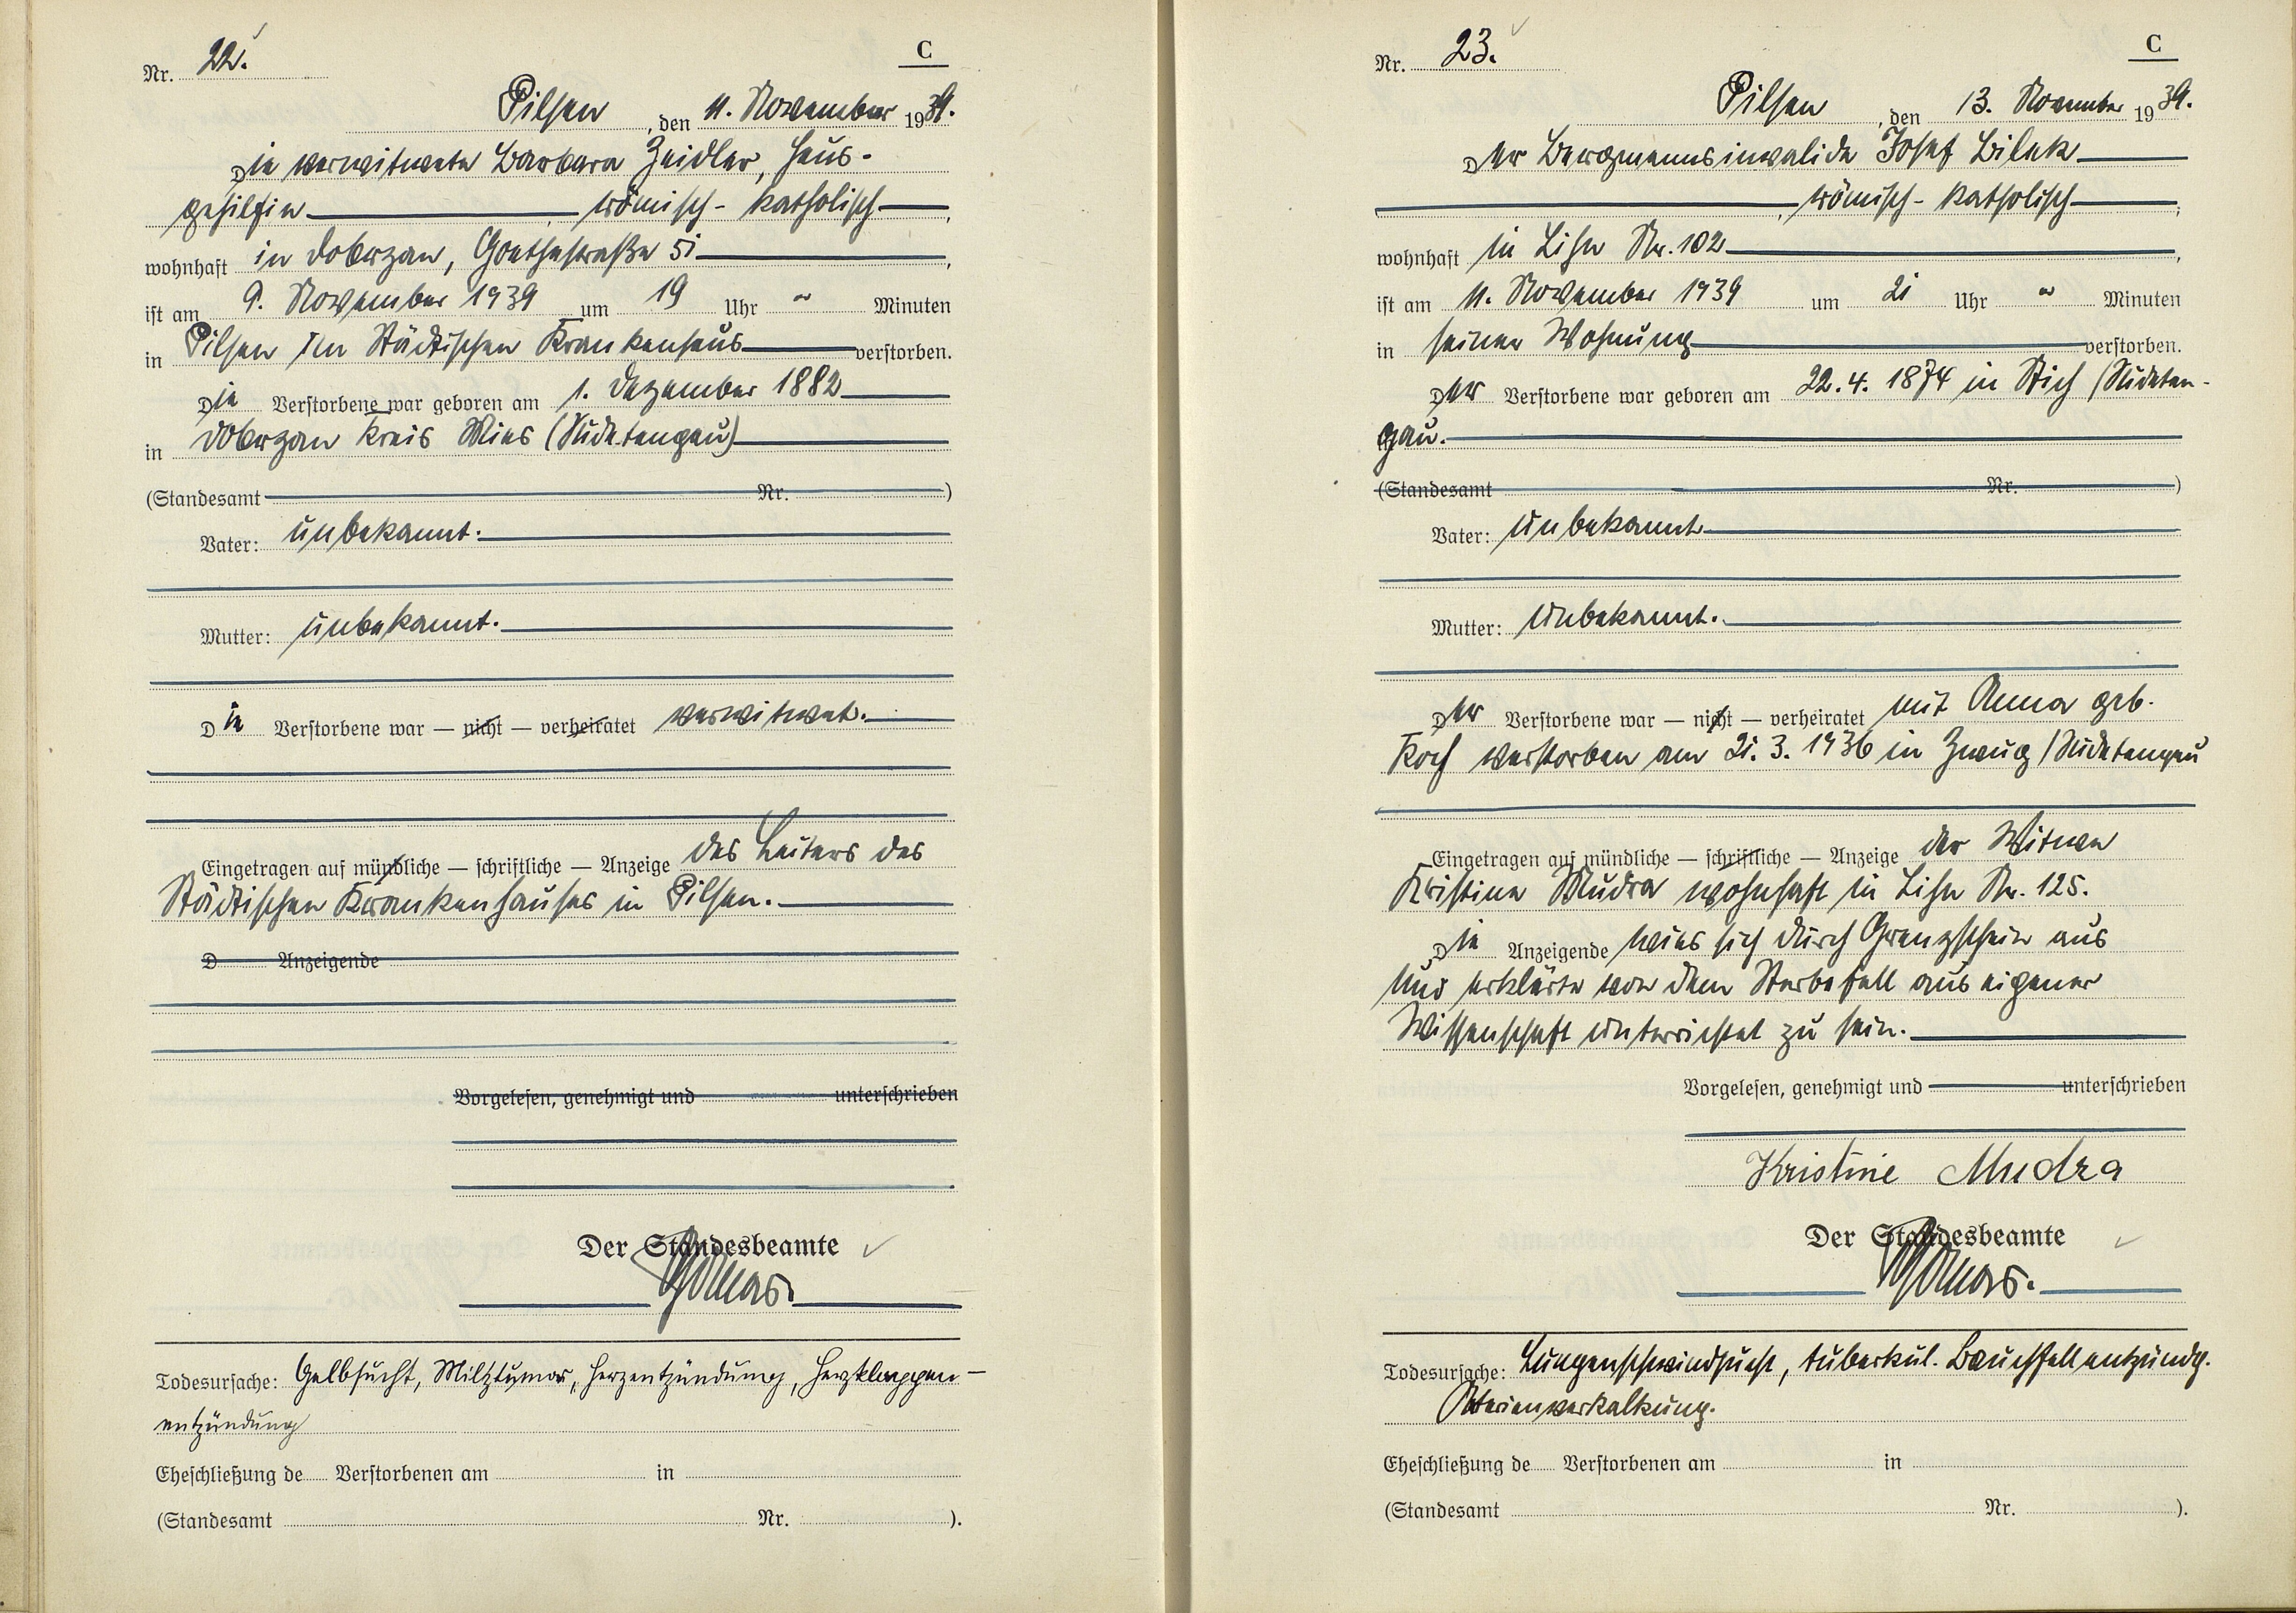 Nr. 22. C
Pilsen, den 11. November 1939.
Die verwitwete Barbara Zeidler, Haus-
gehilfin, römisch-katholisch,
wohnhaft in Dobrzan, Goethestraße 51,
ist am 9. November 1939 um 19 Uhr - Minuten
in Pilsen im Städtischen Krankenhaus verstorben.
Die Verstorbene war geboren am 1. Dezember 1882
in Dobrzan Kreis Mies (Sudetengau)
(Standesamt Nr. )
Vater: unbekannt.
Mutter: unbekannt.
Die Verstorbene war — nicht — verheiratet verwitwet.
Eingetragen auf mündliche — schriftliche — Anzeige des Leiters des
Städtischen Krankenhauses in Pilsen.
D Anzeigende
Vorgelesen, genehmigt und unterschrieben
Der Standesbeamte
Todesursache: Gelbsucht, Milztumor, Herzentzündung, Herzklappen-
entzündung
Eheschließung de Verstorbenen am in
(Standesamt Nr. ).
Nr. 23. C
Pilsen, den 13. November 1939.
Der Bergmannsinvalide Josef Bilek
, römisch-katholisch,
wohnhaft in Lihn Nr. 102,
ist am 11. November 1939 um 21 Uhr - Minuten
in seiner Wohnung verstorben.
Der Verstorbene war geboren am 22.4.1874 in Stich /Sudeten-
gau.
(Standesamt Nr. )
Vater: unbekannt
Mutter: unbekannt.
Der Verstorbene war — nicht — verheiratet mit Anna geb.
Koch verstorben am 21.3.1936 in Zwug /Sudetengau
Eingetragen auf mündliche — schriftliche — Anzeige der Witwe
Kristine Mudra wohnhaft in Lihn Nr. 125.
Die Anzeigende wies sich durch Grenzschein aus
und erklärte von dem Sterbefall aus eigener
Wissenschaft unterrichtet zu sein.
Vorgelesen, genehmigt und unterschrieben
Kristine Mudra
Der Standesbeamte
Todesursache: Lungenschwindsucht, tuberkul. Bauchfellentzündg.
Aterienverkalkung.
Eheschließung de Verstorbenen am in
(Standesamt Nr. ).